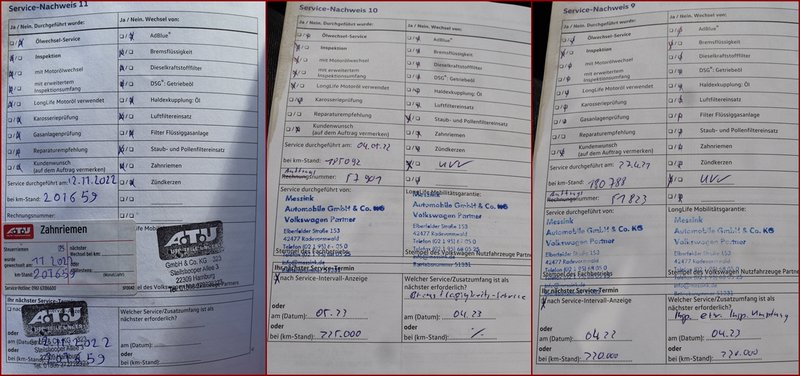 Service-Nachweis 11
Ja / Nein. Durchgeführt wurde:
Ja / Nein. Wechsel von:
Ölwechsel-Service
AdBlue®
Inspektion
Bremsflüssigkeit
mit Motorölwechsel
Dieselkraftstofffilter
mit erweitertem
Inspektionsumfang
DSG®: Getriebeöl
LongLife Motoröl verwendet
Haldexkupplung: Öl
Karosserieprüfung
Luftfiltereinsatz
Gasanlagenprüfung
Filter Flüssiggasanlage
Reparaturempfehlung
Staub- und Pollenfiltereinsatz
Kundenwunsch
(auf dem Auftrag vermerken)
Zahnriemen
Zündkerzen
Service durchgeführt am: 12.11.2022
bei km-Stand: 201659
Rechnungsnummer:
A.T.U
Zahnriemen
nächster
Wechsel bei km:
wurde
gewechselt am: 11 202
km-Stand: 201659
A.T.U
GmbH & Co. KG 323
Steilshooper Allee 3
22309 Hamburg
Ihr nächster Service-Termin
oder
am (Datum):
oder
bei (km-Stand):
A.T.U
Steilshooper Allee 3
12.11.2022
201659
Welcher Service/Zusatzumfang ist als
nächster erforderlich?
am (Datum):
bei (km-Stand):
Service-Nachweis 10
Ja / Nein. Durchgeführt wurde:
Ja / Nein. Wechsel von:
Ölwechsel-Service
AdBlue®
Inspektion
Bremsflüssigkeit
mit Motorölwechsel
Dieselkraftstofffilter
mit erweitertem
Inspektionsumfang
DSG®: Getriebeöl
LongLife Motoröl verwendet
Haldexkupplung: Öl
Karosserieprüfung
Luftfiltereinsatz
Reparaturempfehlung
Staub- und Pollenfiltereinsatz
Kundenwunsch
(auf dem Auftrag vermerken)
Zahnriemen
Service durchgeführt am: 04.05.22
Zündkerzen
bei km-Stand: 195092
UVV
Auftrags
Rechnungsnummer: 57901
Service durchgeführt von:
LongLife Mobilitätsgarantie:
Messink
Automobile GmbH & Co. KG
Volkswagen Partner
Elberfelder Straße 153
42477 Radevormwald
Messink
Automobile GmbH & Co. KG
Volkswagen Partner
Elberfelder Straße 153
42477 Radevormwald
Stempel des Volkswagen Nutzfahrzeuge Partners
Ihr nächster Service-Termin
nach Service-Intervall-Anzeige
Welcher Service/Zusatzumfang ist als
nächster erforderlich?
Bremsflüssigkeit-Service
oder
am (Datum): 05.23
am (Datum): 04.23
oder
bei (km-Stand): 225.000
bei (km-Stand): %
Service-Nachweis 9
Ja / Nein. Durchgeführt wurde:
Ja / Nein. Wechsel von:
Ölwechsel-Service
AdBlue®
Inspektion
Bremsflüssigkeit
mit Motorölwechsel
Dieselkraftstofffilter
mit erweitertem
Inspektionsumfang
DSG®: Getriebeöl
LongLife Motoröl verwendet
Haldexkupplung: Öl
Karosserieprüfung
Luftfiltereinsatz
Gasanlagenprüfung
Filter Flüssiggasanlage
Reparaturempfehlung
Staub- und Pollenfiltereinsatz
Kundenwunsch
(auf dem Auftrag vermerken)
Zahnriemen
Service durchgeführt am: 27.4.21
Zündkerzen
bei km-Stand: 180788
UVV
Auftrags
Rechnungsnummer: 51823
Service durchgeführt von:
LongLife Mobilitätsgarantie:
Messink
Automobile GmbH & Co. KG
Volkswagen Partner
Elberfelder Straße 153
42477 Radevormwald
Messink
Automobile GmbH & Co. KG
Volkswagen Partner
Elberfelder Straße 153
42477 Radevormwald
Stempel des Volkswagen Nutzfahrzeuge Partners
Ihr nächster Service-Termin
nach Service-Intervall-Anzeige
Welcher Service/Zusatzumfang ist als
nächster erforderlich?
oder
am (Datum): 04.22
am (Datum): 04.23
oder
bei (km-Stand): 220.000
bei (km-Stand): 220.000